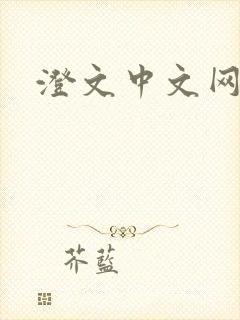 澄文中文网
芥蓝